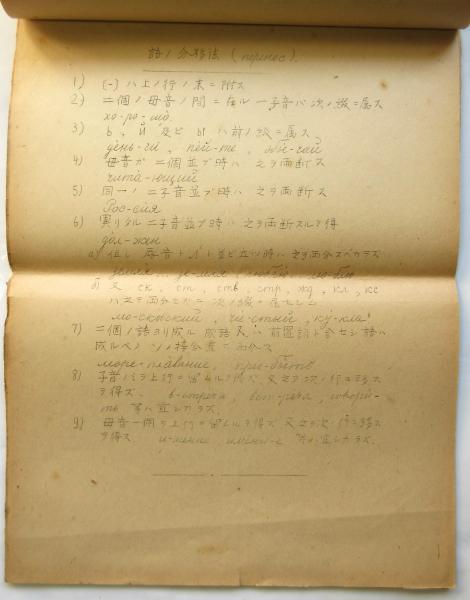 語ノ分綴法 (перенос).
1) (-) ハ上ノ行ノ末ニ附ス
2) 二個ノ母音ノ間ニ在ル一子音ハ次ノ綴ニ属ス
хо-ро-шо.
3) ь, й 及ビ ы ハ前ノ綴ニ属ス
день-ги, пой-те,
4) 母音ガ二個並ブ時ハ之ヲ両断ス
чита-ющий
5) 同一ノ二子音並ブ時ハ之ヲ両断ス
Рос-сия
6) 異リタル二子音並ブ時ハ之ヲ両断スルヲ得
дол-жен
а) 但シ ト並ビ立ツ時ハ之ヲ両分スベカラズ
земля зе-мля люблю лю-блю
б) 又 ск, ст, ств, стр, жд, кл, кс
ハ之ヲ両分セズニ次ノ綴ニ属セシム
мо-сковский, чи-стый, ку-кла
7) 二個ノ語ヨリ成ル 又ハ前置詞ト合セシ語ハ
成ルベク ソノ接合点ニテ分ツ
море-плавание, при-быть
8) 子音ノミヲ上行ニ留ムルヲ得ズ 又之ヲ次ノ行ニ移ス
ヲ得ズ. в-стреча, вст-реча, говори-
ть 等ハ宜シカラズ.
9) 母音一個ヲ上行ニ留ムルヲ得ズ 又之ヲ次ノ行ニ移ス
ヲ得ズ и-мение имени-е 等ハ宜シカラズ.